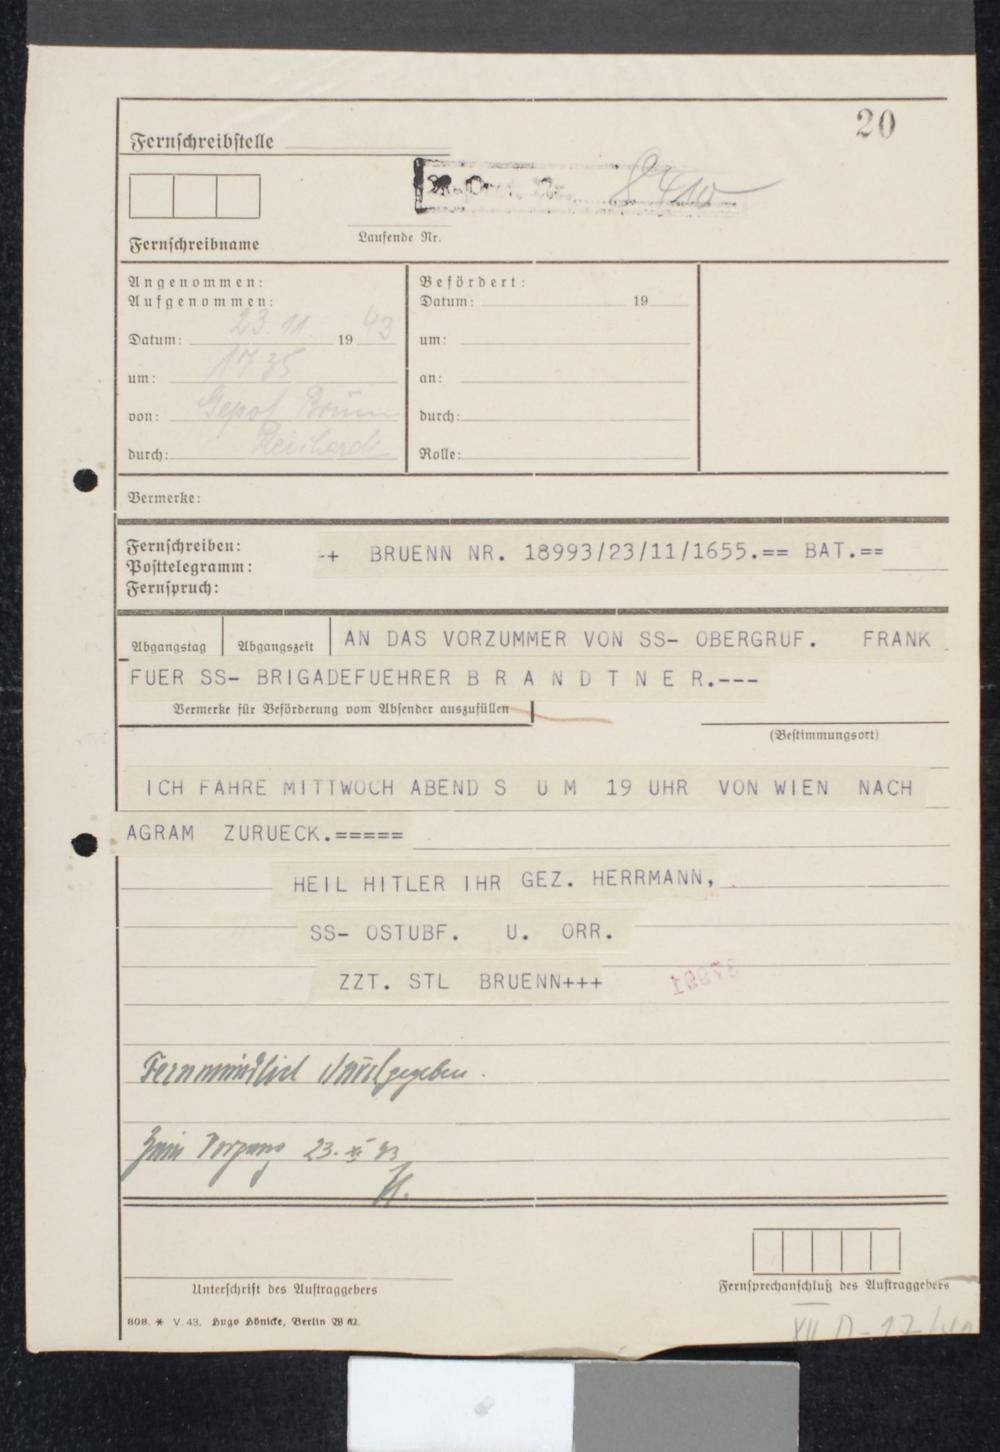 20
Fernschreibstelle
Fernschreibname
Laufende Nr.
Angenommen:
Aufgenommen:
Datum: 23. 11. 19 43
um: 1735
von: Gepol Brünn
durch:
Befördert:
Datum: 19
um:
an:
durch:
Rolle:
Vermerke:
Fernschreiben:
Posttelegramm:
Fernspruch:
-+ BRUENN NR. 18993/23/11/1655.== BAT.==
Abgangstag Abgangszeit AN DAS VORZUMMER VON SS- OBERGRUF. FRANK
FUER SS- BRIGADEFUEHRER B R A N D T N E R.---
Vermerke für Beförderung vom Absender auszufüllen
(Bestimmungsort)
ICH FAHRE MITTWOCH ABEND S U M 19 UHR VON WIEN NACH
AGRAM ZURUECK.=====
HEIL HITLER IHR GEZ. HERRMANN,
SS- OSTUBF. U. ORR.
ZZT. STL BRUENN+++
Fernmündlich durchgegeben.
Zum Vorgang 23. XI 43
Unterschrift des Auftraggebers
Fernsprechanschluß des Auftraggebers
808. * V. 43. Hugo Hönicke, Berlin W 62.